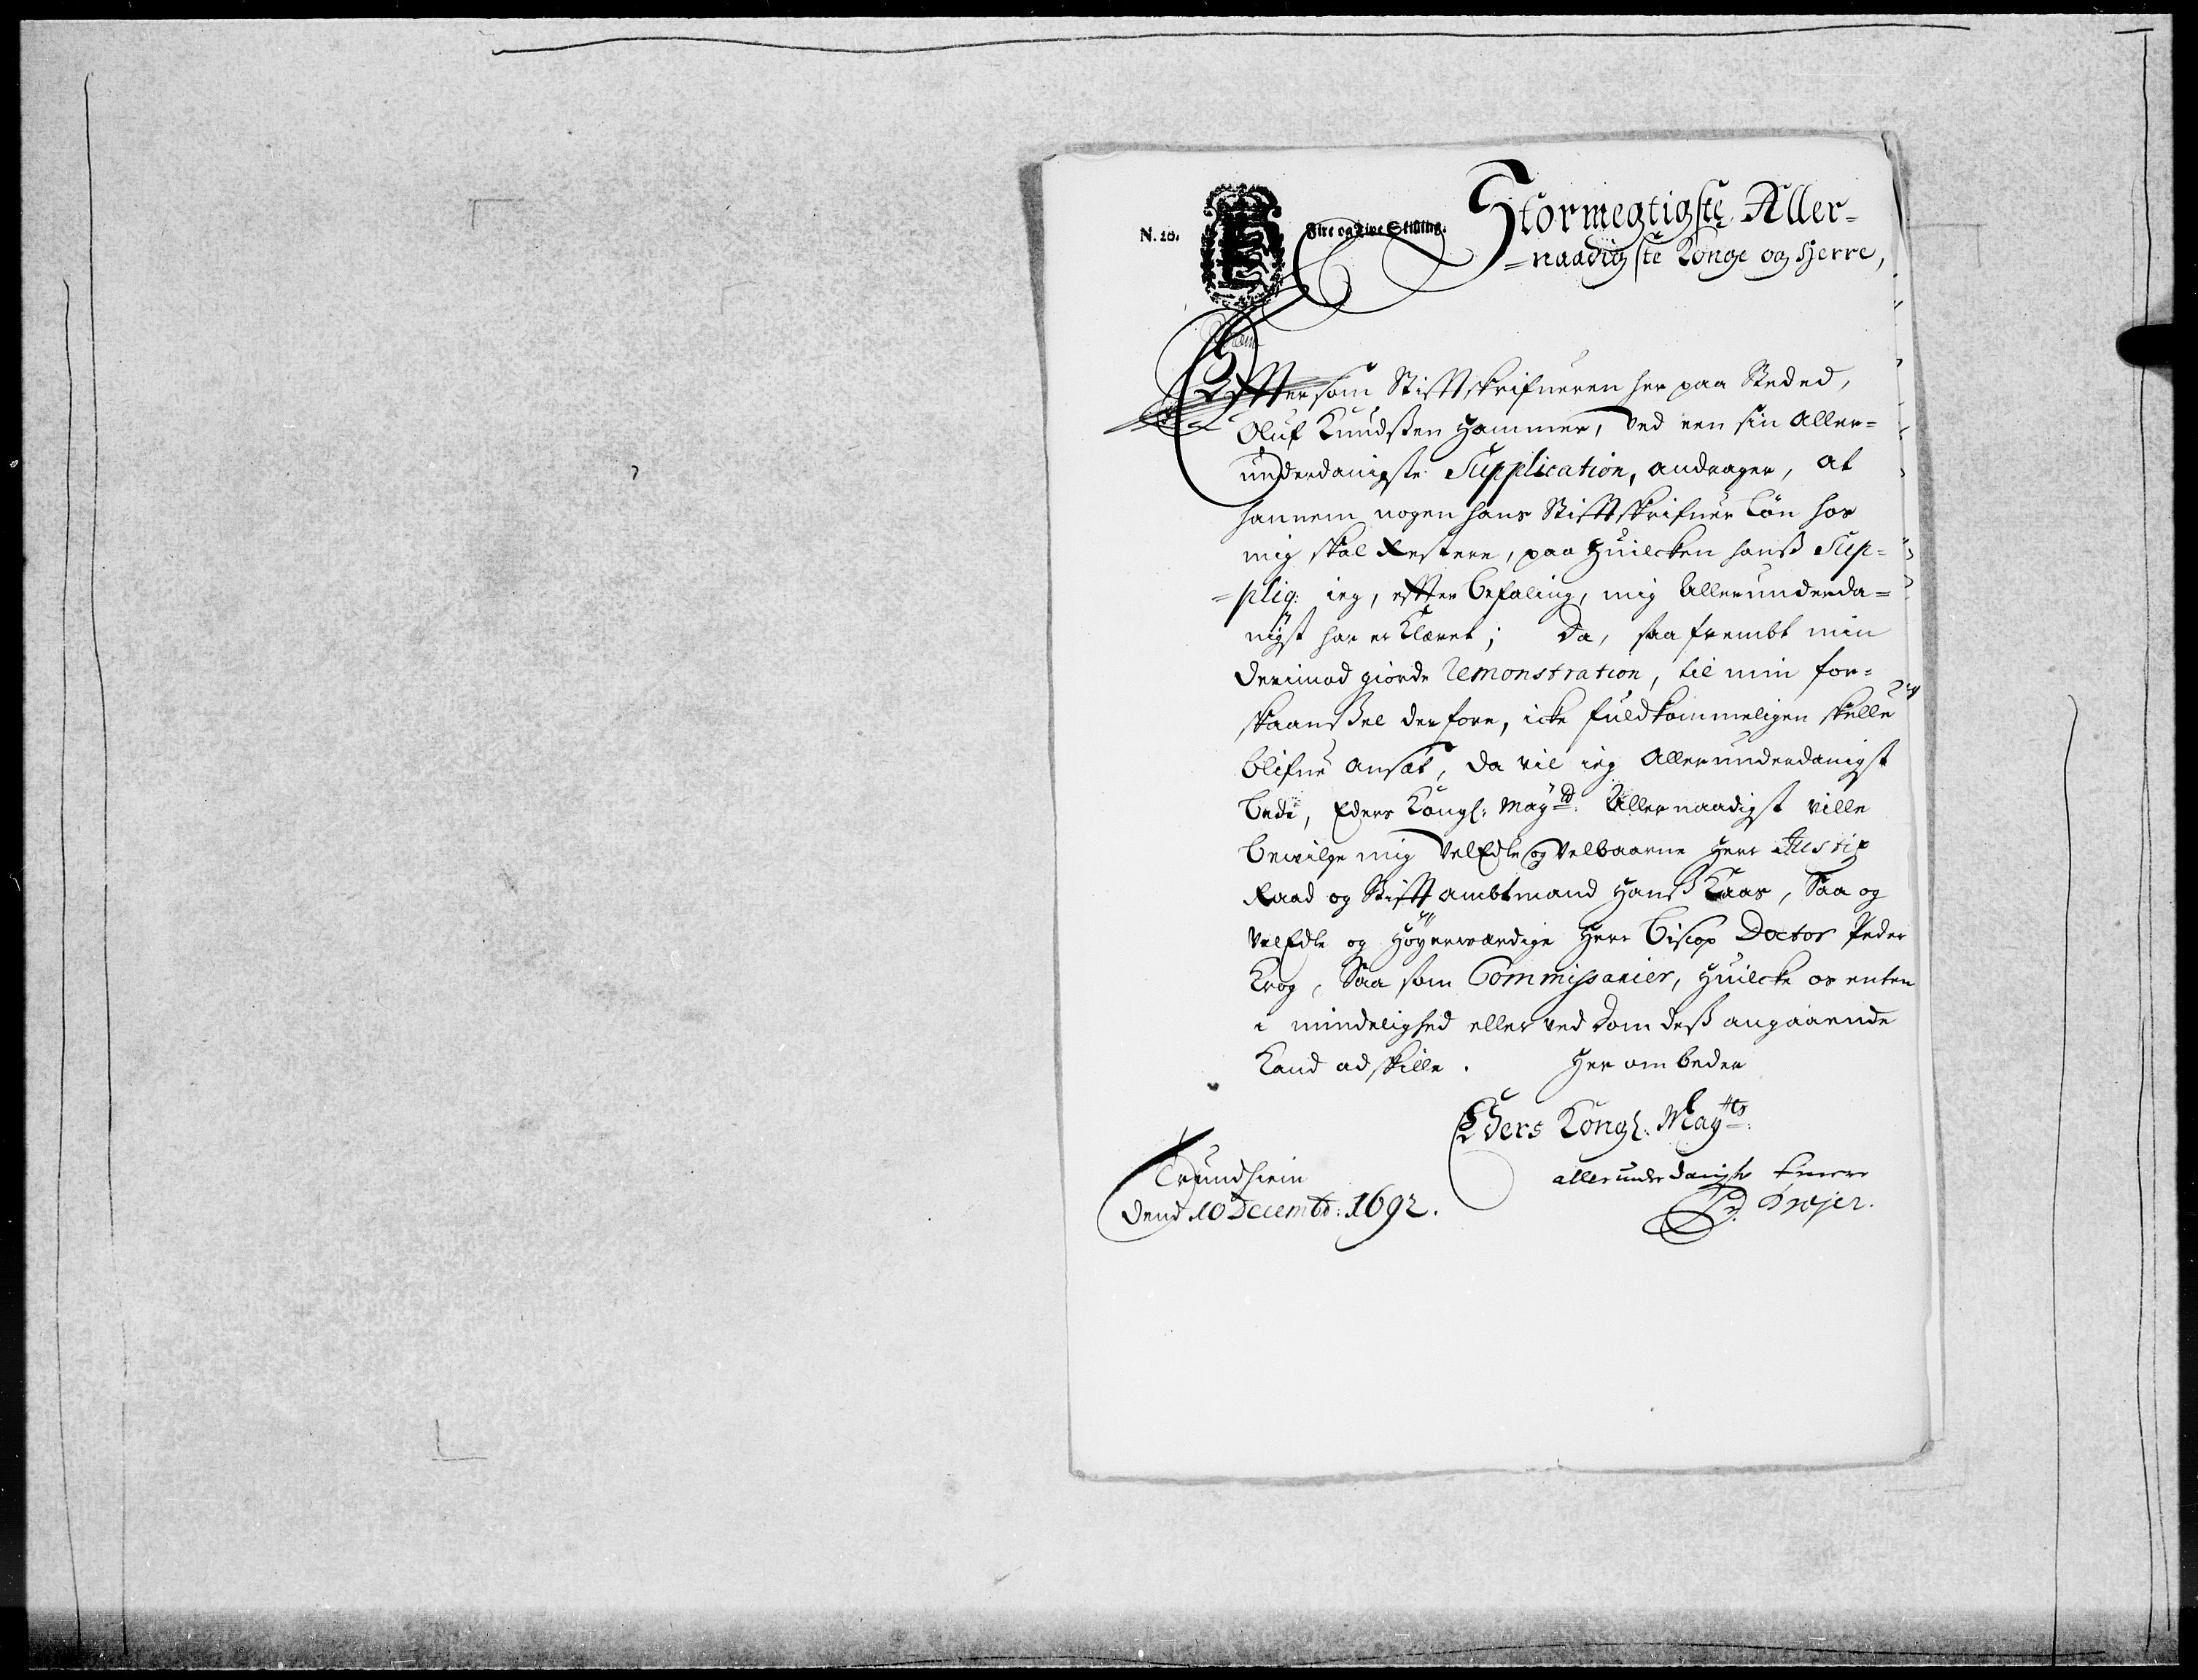 N. 20.
Fire og Tive Skilling.
Stormegtigste Aller-
=naadigste Konge og Herre,
Efftersom Stifftskrifueren her paa Steded,
Oluf Knudsen Hammer, ved een sin Aller-
underdanigste Supplication, andrager, at
hannem nogen hans Stifftskrifuer Løn hos
mig skal Restere, paa Huilcken hanß Sup-
=pliq: ieg, effter befaling, mig Allerunderda-
nigst har erklæret; Da, saafrembt min
derimod giorde Remonstration, til min for-
skaanßel derfore, icke fuldkommeligen skulle
blifue ansat, da vil ieg Allerunderdanigst
bede, Eders Kongl: Mayd. Allernaadigst ville
bevilge mig VelEdle og Velbaarne Herr Justiz
Raad og Stifftambtmand Hanß Kaas, Saa og
VelEdle og Høyærværdige Herr Biscop Doctor Peder
Krog, Saa som Commissarier, Huilcke os enten
i mindelighed eller ved Dom deß angaaende
Kand adskille. Her om beder
Eders Kongl. Maytts
Trundhiem
allerunderdanigste
Dend 10 Decembr: 1692.
Dreyer.